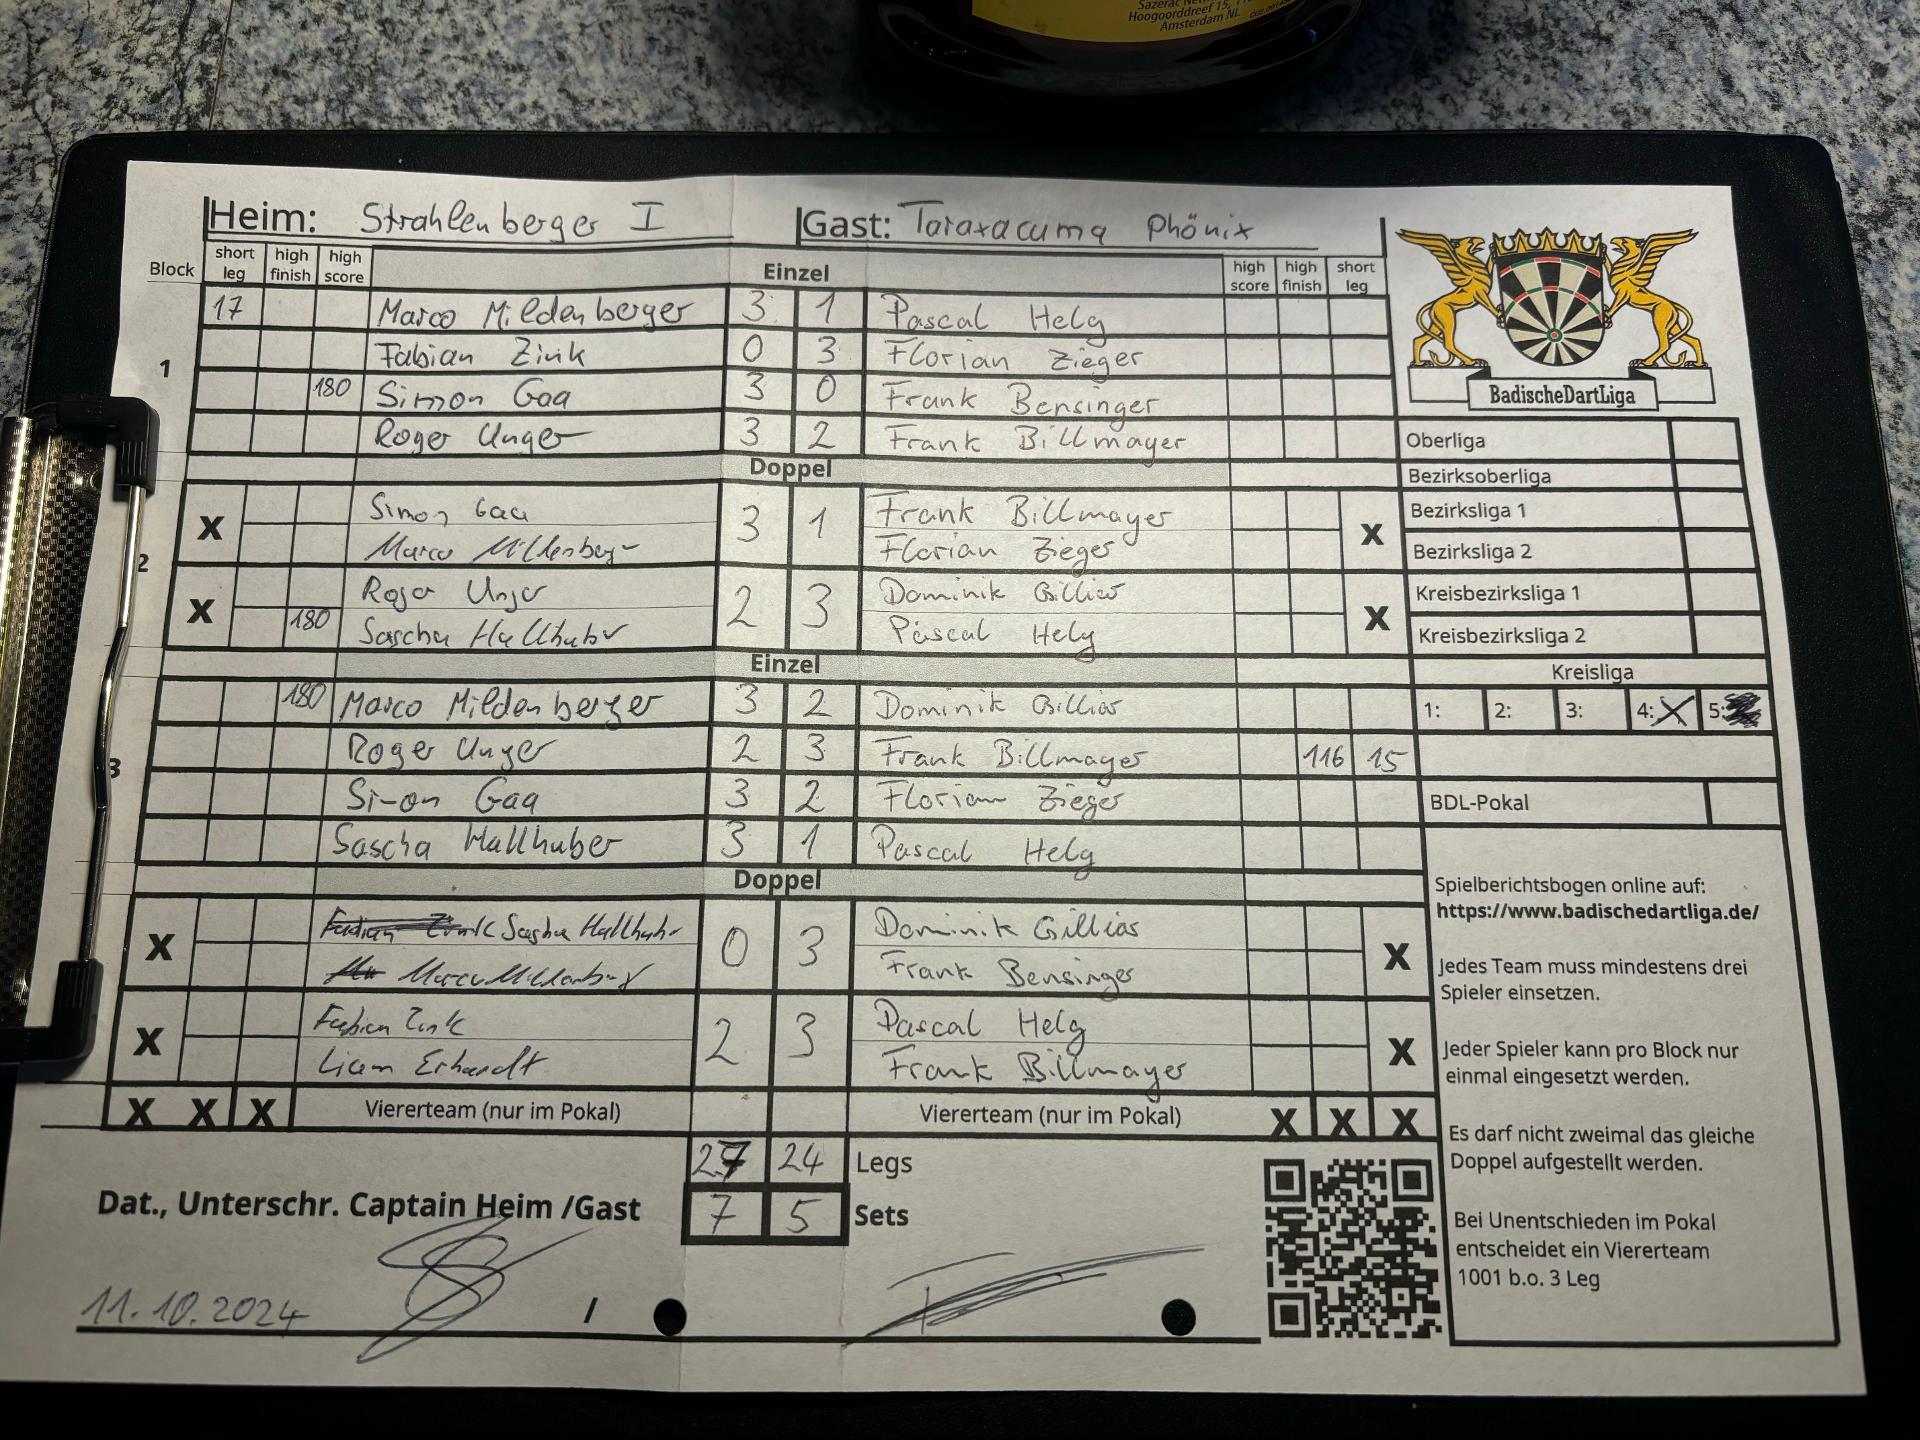 Hoogoorddreef 15,
Amsterdam NL
Heim: Strahlenberger I Gast: Taraxacuma Phönix
Block short leg high finish high score Einzel high score high finish short leg
1
17 Marco Mildenberger 3 1 Pascal Helg
Fabian Zink 0 3 Florian Zieger
180 Simon Gaa 3 0 Frank Bensinger
Roger Unger 3 2 Frank Billmayer
Doppel
2
X Simon Gaa 3 1 Frank Billmayer X
Marco Mildenberger Florian Zieger
X Roger Unger 2 3 Dominik Gillias X
180 Sascha Hallhuber Pascal Helg
Einzel
3
180 Marco Mildenberger 3 2 Dominik Gillias
Roger Unger 2 3 Frank Billmayer 116 15
Simon Gaa 3 2 Florian Zieger
Sascha Hallhuber 3 1 Pascal Helg
Doppel
X Fabian Zink Sascha Hallhuber 0 3 Dominik Gillias X
Marco Mildenberger Frank Bensinger
X Fabian Zink 2 3 Pascal Helg X
Liam Erhardt Frank Billmayer
X X X Viererteam (nur im Pokal) Viererteam (nur im Pokal) X X X
27 24 Legs
7 5 Sets
Dat., Unterschr. Captain Heim /Gast
11.10.2024 /
BadischeDartLiga
Oberliga
Bezirksoberliga
Bezirksliga 1
Bezirksliga 2
Kreisbezirksliga 1
Kreisbezirksliga 2
Kreisliga
1: 2: 3: 4: X 5:
BDL-Pokal
Spielberichtsbogen online auf:
https://www.badischedartliga.de/
Jedes Team muss mindestens drei
Spieler einsetzen.
Jeder Spieler kann pro Block nur
einmal eingesetzt werden.
Es darf nicht zweimal das gleiche
Doppel aufgestellt werden.
Bei Unentschieden im Pokal
entscheidet ein Viererteam
1001 b.o. 3 Leg